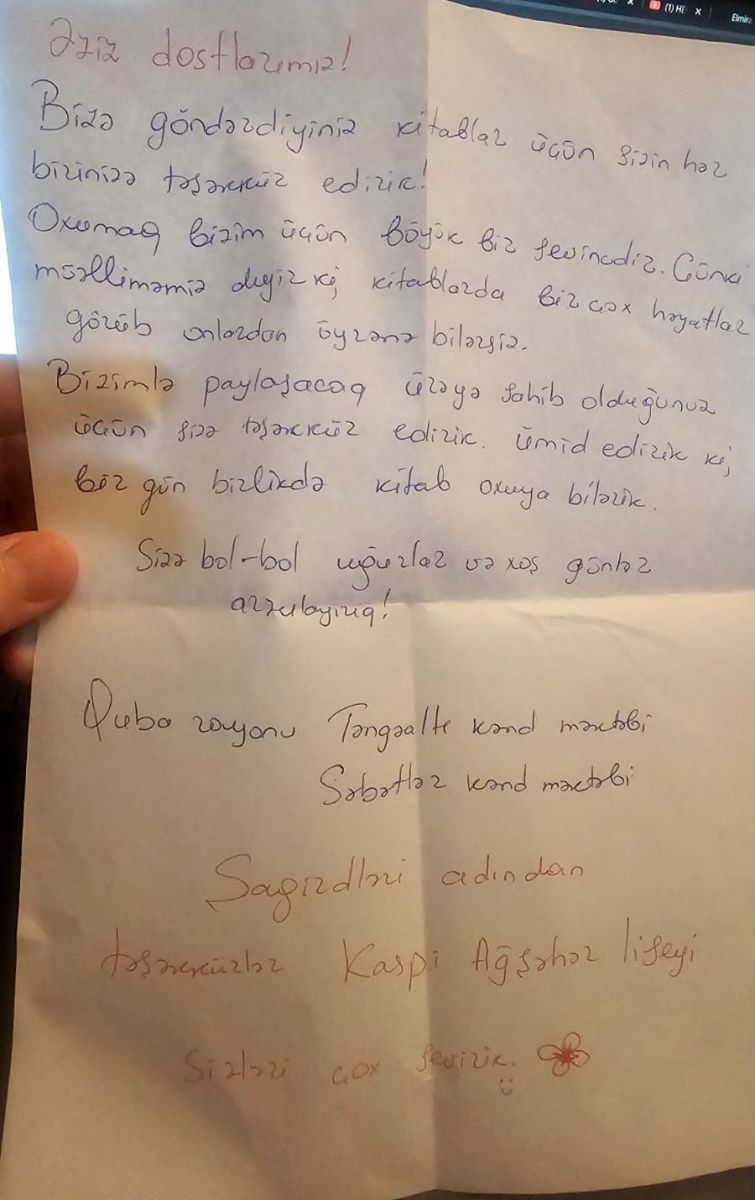 (1) HE
Elmira
Əziz dostlarımız!
Bizə göndərdiyiniz kitablar üçün sizin hər
birinizə təşəkkür edirik!
Oxumaq bizim üçün böyük bir sevincdir. Çünki
müəlliməmiz deyir ki, kitablarda biz çox həyatlar
görüb onlardan öyrənə bilərsiz.
Bizimlə paylaşacaq ürəyə sahib olduğunuz
üçün sizə təşəkkür edirik. Ümid edirik ki,
bir gün birlikdə kitab oxuya bilərik.
Sizə bol-bol uğurlar və xoş günlər
arzulayırıq!
Quba rayonu Təngəaltı kənd məktəbi
Səbətlər kənd məktəbi
Şagirdləri adından
təşəkkürlər Kaspi Ağşəhər liseyi
Sizləri çox sevirik.